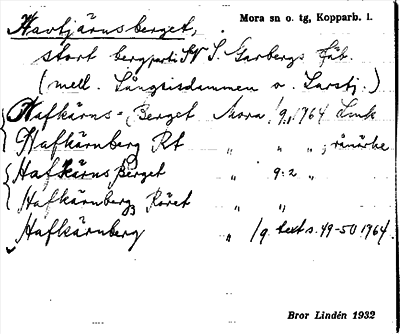 Havtjärnsberget, Mora sn o. tg, Kopparb. l.
stort bergparti SV S. Garbergs fäb.
(mell. Långsisdammen o. Larstj.)
Hafkärns-Berget Mora /9,1 1764 Link
Hafkärnberg Rt " " " ; rårörke
Hafkärns Berget " 9:2 "
Hafkärnberg Röret " "
Hafkärnberg " /9 text s. 49-50 1764.
Bror Lindén 1932